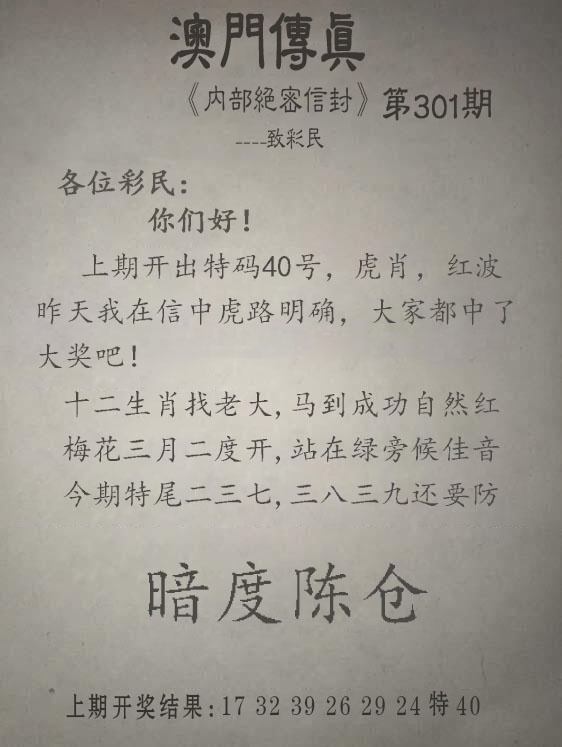 澳門傳眞
《内部絕密信封》第301期
----致彩民
各位彩民：
你们好！
上期开出特码40号，虎肖，红波
昨天我在信中虎路明确，大家都中了
大奖吧！
十二生肖找老大,马到成功自然红
梅花三月二度开,站在绿旁候佳音
今期特尾二三七,三八三九还要防
暗度陈仓
上期开奖结果:17 32 39 26 29 24特40